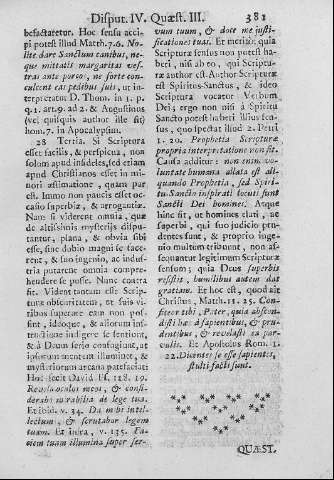 Disput. IV. Quæst. III. 381
befactaretur. Hoc sensu acci-
pi potest illud Matth. 7. 6. No-
lite dare Sanctum canibus, ne-
que mittatis margaritas ves-
tras ante porcos, ne forte con-
culcent eas pedibus suis, ut in-
terpretatur D. Thom. in 3. p.
q. 1. art. 9. ad 2. & Augustinus
(vel quisquis author ille sit)
hom. 7. in Apocalypsim.
28 Tertia. Si Scriptura
esset facilis, & perspicua, non
solum apud infideles, sed etiam
apud Christianos esset in mi-
nori æstimatione, quam par
est. Immo non paucis esset oc-
casio superbiæ, & arrogantiæ.
Nam si viderent omnia, quæ
de altissimis mysteriis dispu-
tantur, plana, & obvia sibi
esse, sine dubio magis se facer-
rent, & suo ingenio, ac indus-
tria putarent omnia compre-
hendere se posse. Nunc contra
fit. Vident tantam esse Scrip-
turæ obscuritatem, ut suis vi-
ribus superare eam non pos-
sint, ideoque, & aliorum ins-
tructione indigere se sentiunt,
& à Deum serio confugiunt, ut
ipsorum mentem illuminet, &
mysteriorum arcana patefaciat:
Hoc fecit David Ps. 118. 19.
Revela oculos meos, & consi-
derabo mirabilia de lege tua.
Et ibid. v. 34. Da mihi intel-
lectum, & scrutabor legem
tuam. Et infra, v. 135. Fa-
ciem tuam illumina super ser-
vum tuum, & doce me justi-
ficationes tuas. Et merito; quia
Scripturæ sensus non potest ha-
beri, nisi ab eo, qui Scriptu-
ræ author est. Author Scripturæ
est Spiritus-Sanctus, & ideo
Scriptura vocatur Verbum
Dei; ergo non nisi à Spiritu
Sancto potest haberi illius sen-
sus, quo spectat illud 2. Petri
1. 20. Prophetia Scripturæ
propria interpretatione non fit.
Causa additur: non enim vo-
luntate humana allata est ali-
quando Prophetia, sed Spiri-
tu-Sancto inspirati locuti sunt
Sancti Dei homines. Atque
hinc fit, ut homines elati, ac
superbi, qui suo judicio pru-
dentes sunt, & proprio inge-
nio multum tribuunt, non as-
sequantur legitimum Scripturæ
sensum; quia Deus superbis
resistit, humilibus autem dat
gratiam. Et hoc est, quod ait
Christus, Match. 11. 25. Con-
fiteor tibi, Pater, quia abscon-
disti hæc à sapientibus, & pru-
dentibus, & revelasti ea par-
vulis. Et Apostolus Rom. 1.
22. Dicentes se esse sapientes,
stulti facti sunt.
QUÆST.